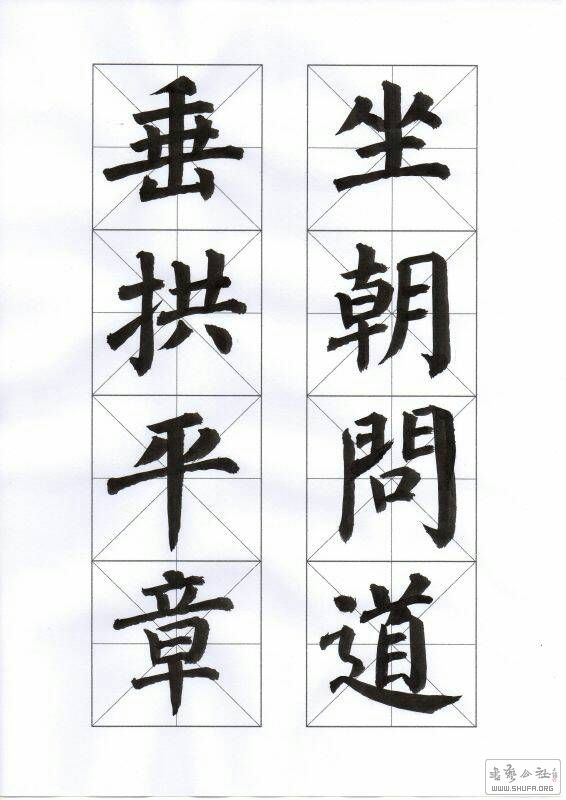 坐朝問道
垂拱平章
WWW.SHUFA.ORG